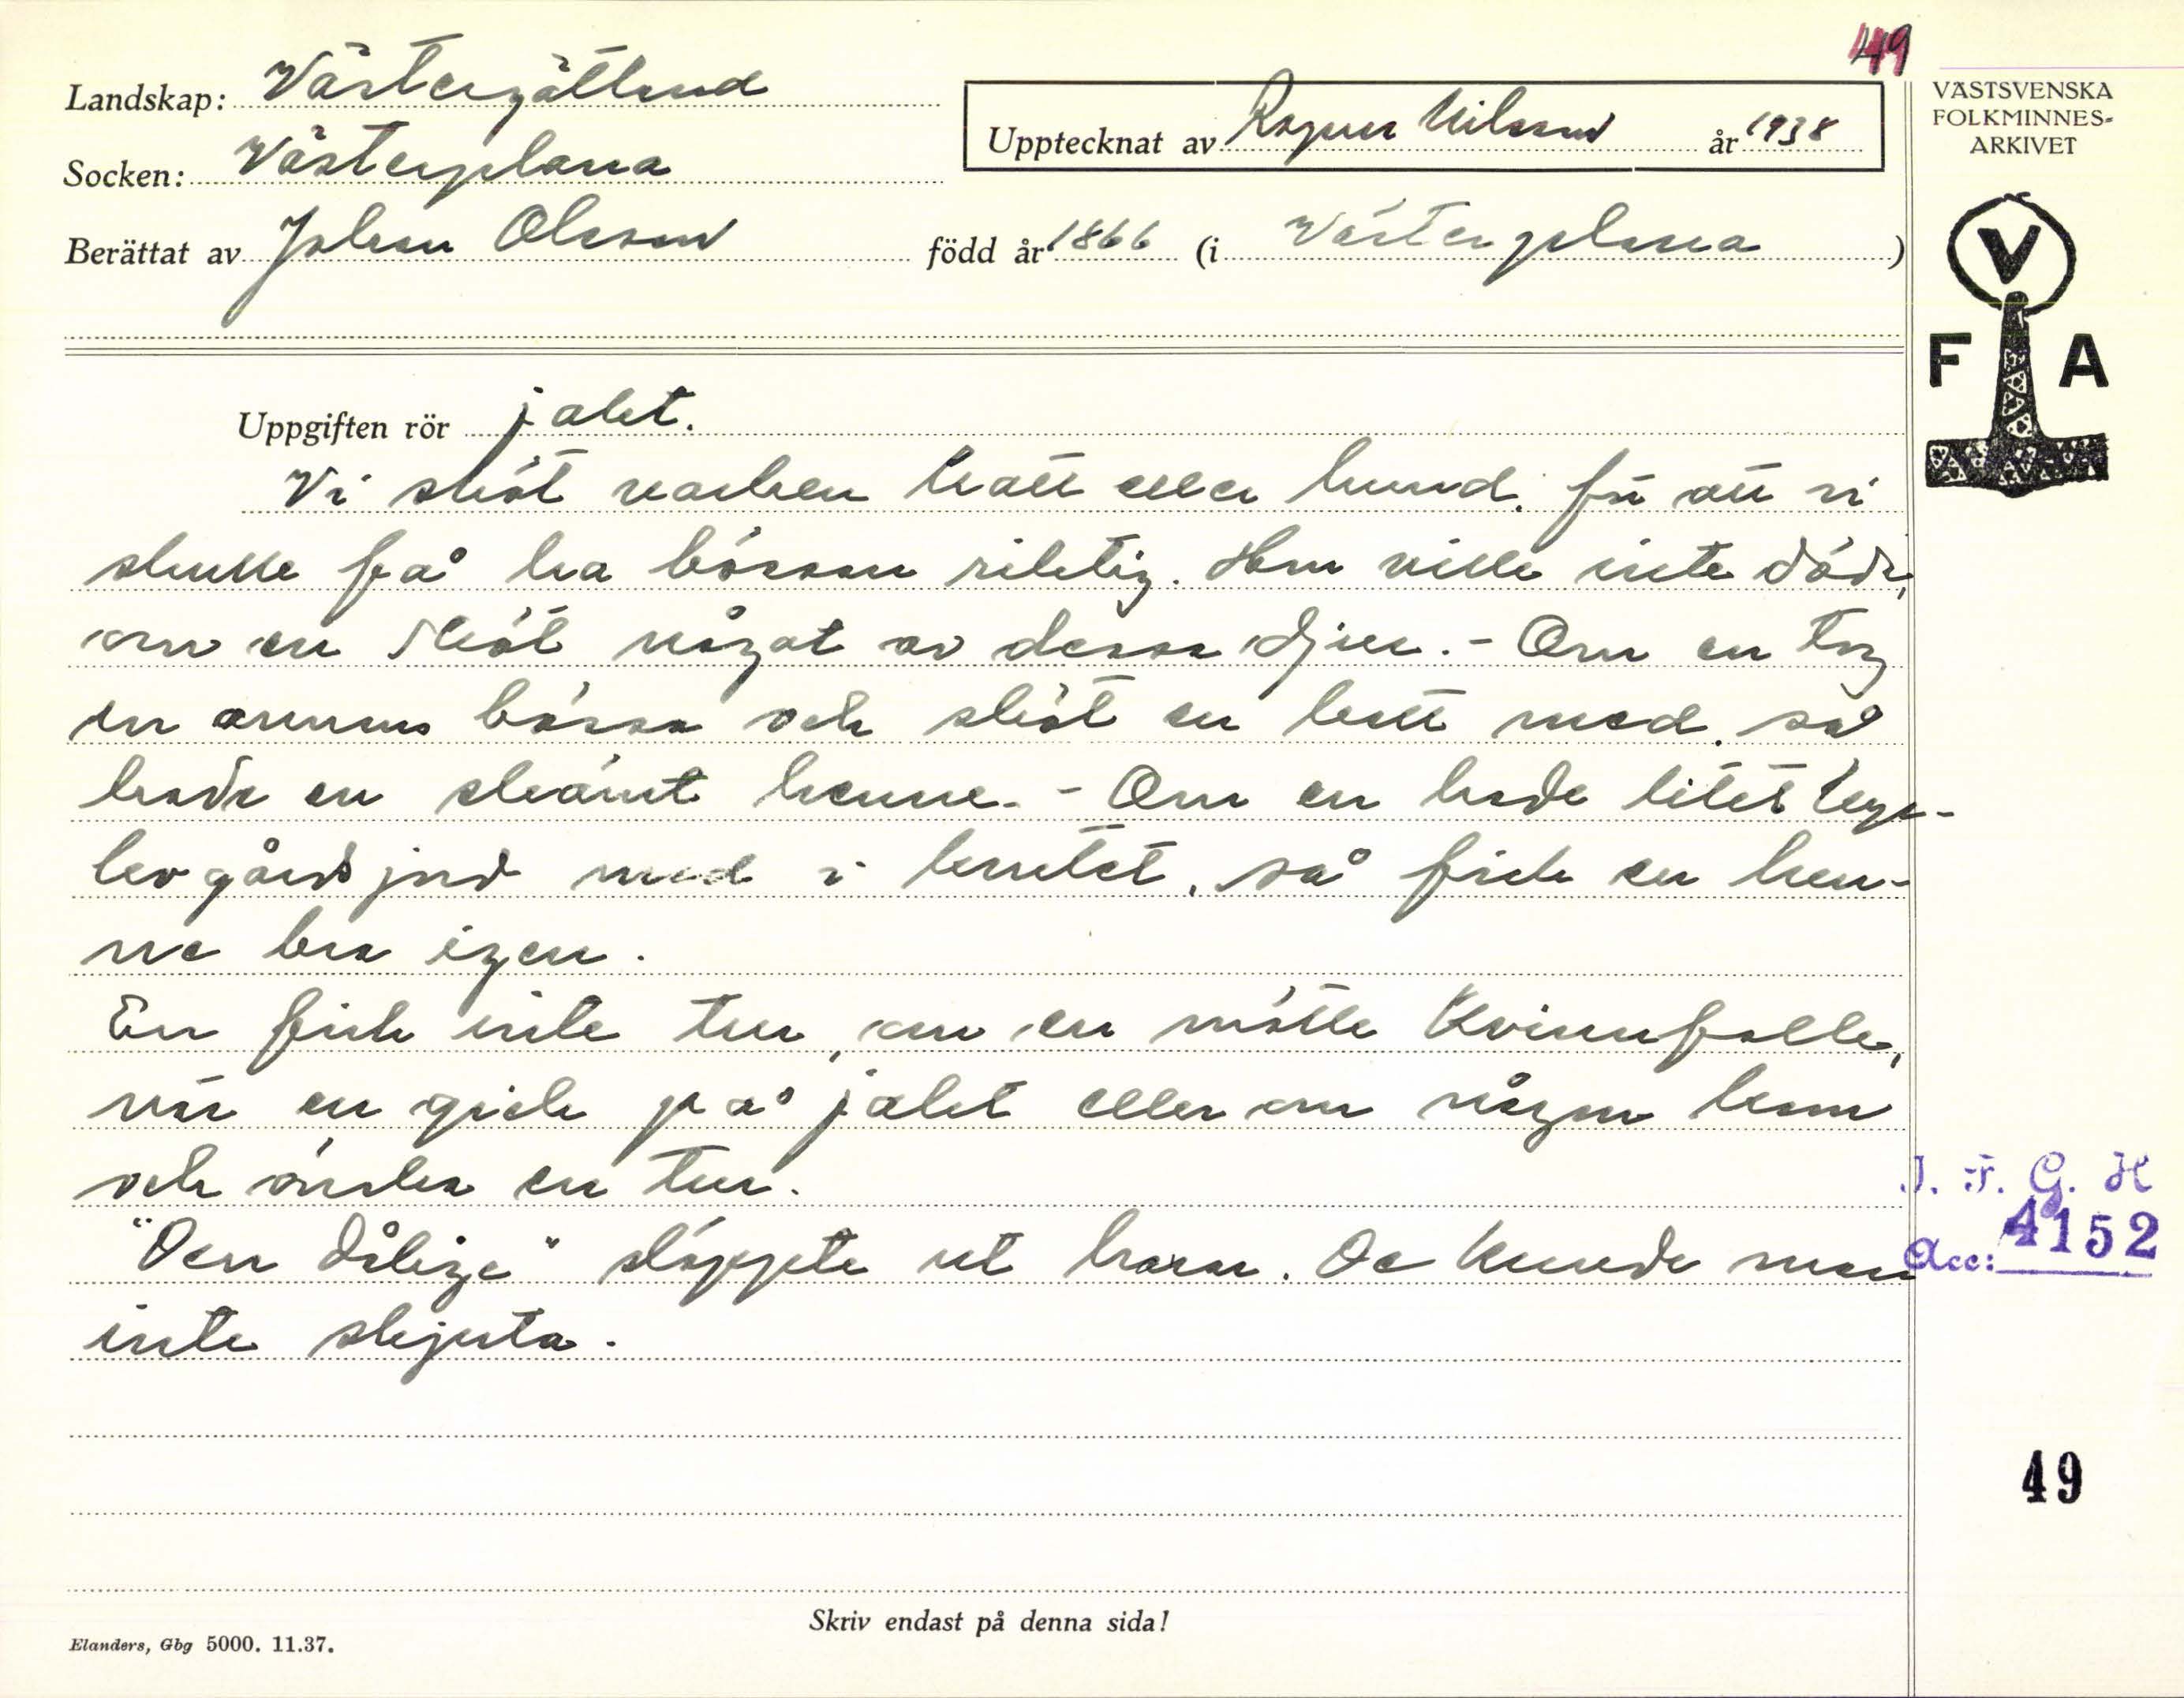 49
Landskap: Västergötland
Socken: Västerplana
Upptecknat av Ragnar Nilsson år 1938
Berättat av Johan Olsson född år 1866 (i Västerplana)
VÄSTSVENSKA
FOLKMINNES-
ARKIVET
V
F A
Uppgiften rör jakt.
Vi sköt varken katt eller hund, för att vi
skulle få ha bössan riktig. Hon ville inte döda,
om en sköt något av dessa djur. - Om en tog
en annans bössa och sköt en katt med, så
hade en skämt henne. - Om en hade litet kyr-
kogårdsjord med i krutet, så fick en hen-
ne bra igen.
En fick inte tur, om en mötte kvinnfolk,
när en gick på jakt eller om någon kom
och önska en tur.
"Den dålige" släppte ut harar. De kunde man
inte skjuta.
I. F. G. H
Acc: 4152
49
Skriv endast på denna sida!
Elanders, Gbg 5000. 11.37.